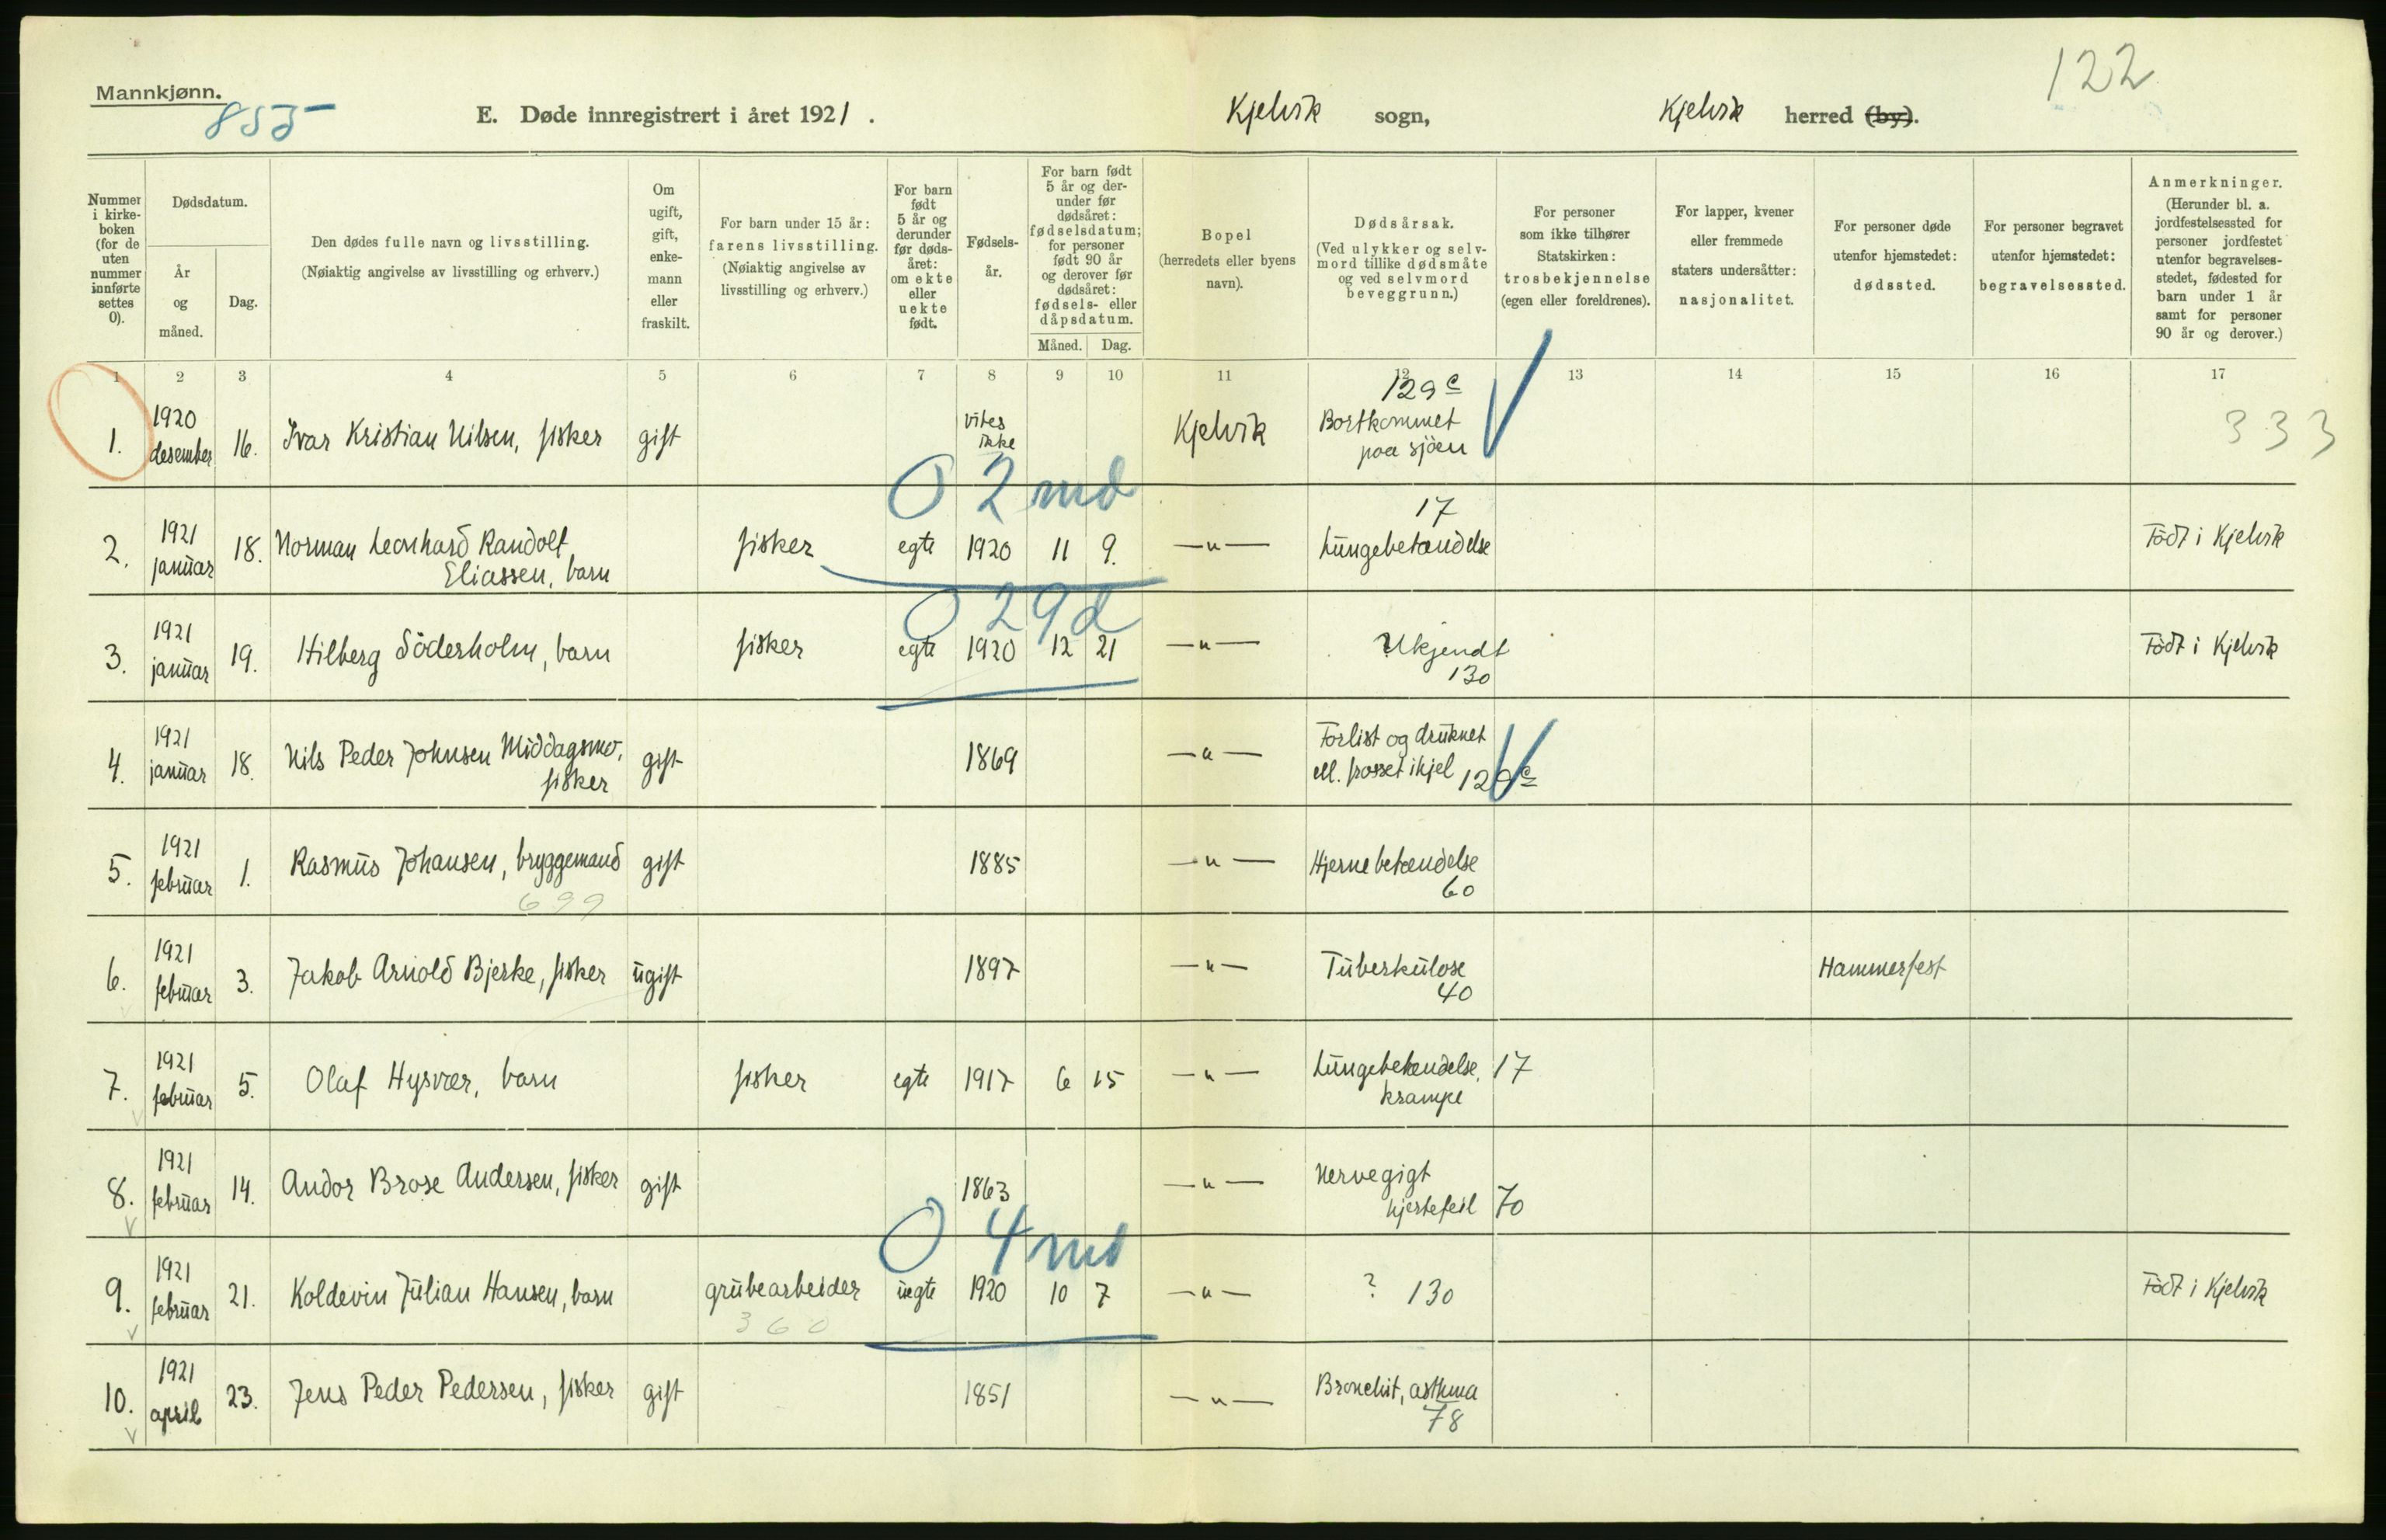 122
Mannkjønn.
855
E. Døde innregistrert i året 1921.
Kjelvik sogn,
Kjelvik herred (by).
Nummer i kirke-boken (for de uten nummer innførte settes 0).
Dødsdatum.
År og måned.
Dag.
Den dødes fulle navn og livsstilling.
(Nøiaktig angivelse av livsstilling og erhverv.)
Om ugift, gift, enke-mann eller fraskilt.
For barn under 15 år: farens livsstilling.
(Nøiaktig angivelse av livsstilling og erhverv.)
For barn født 5 år og derunder før døds-året: om ekte eller uekte født.
Fødsels-år.
For barn født 5 år og der-under før dødsåret: fødselsdatum; for personer født 90 år og derover før dødsåret: fødsels- eller dåpsdatum.
Måned. Dag.
Bopel
(herredets eller byens navn).
Dødsårsak.
(Ved ulykker og selv-mord tillike dødsmåte og ved selvmord beveggrunn.)
For personer som ikke tilhører Statskirken: trosbekjennelse (egen eller foreldrenes).
For lapper, kvener eller fremmede staters undersåtter: nasjonalitet.
For personer døde utenfor hjemstedet: dødssted.
For personer begravet utenfor hjemstedet: begravelsessted.
Anmerkninger.
(Herunder bl. a. jordfestelsessted for personer jordfestet utenfor begravelses-stedet, fødested for barn under 1 år samt for personer 90 år og derover.)
1 2 3 4 5 6 7 8 9 10 11 12 13 14 15 16 17
1. 1920 desember 16. Ivar Kristian Nilsen, fisker gift vites ikke Kjelvik 129c Bortkommet paa sjöen 333
0 2 md
2. 1921 januar 18. Norman Leonhard Randolf Eliassen, barn fisker egte 1920 11 9. —"— 17 Lungebetændelse Födt i Kjelvik
0 29 d
3. 1921 januar 19. Hilberg Söderholm, barn fisker egte 1920 12 21 —"— Ukjendt 130 Födt i Kjelvik
4. 1921 januar 18. Nils Peder Johnsen Middagsmo, fisker gift 1869 —"— Forlist og druknet ell. frosset ihjel 129c
5. 1921 februar 1. Rasmus Johansen, bryggemand gift 1885 —"— Hjernebetændelse 60
699
6. 1921 februar 3. Jakob Arnold Bjerke, fisker ugift 1897 —"— Tuberkulose 40 Hammerfest
7. 1921 februar 5. Olaf Hysvær, barn fisker egte 1917 6 15 —"— Lungebetændelse, krampe 17
8. 1921 februar 14. Andor Brose Andersen, fisker gift 1863 —"— Nervegigt hjertefeil 70
0 4 md
9. 1921 februar 21. Koldevin Julian Hansen, barn grubearbeider uegte 1920 10 7 —"— ? 130 Födt i Kjelvik
360
10. 1921 april 23. Jens Peder Pedersen, fisker gift 1851 —"— Bronchit, asthma 78